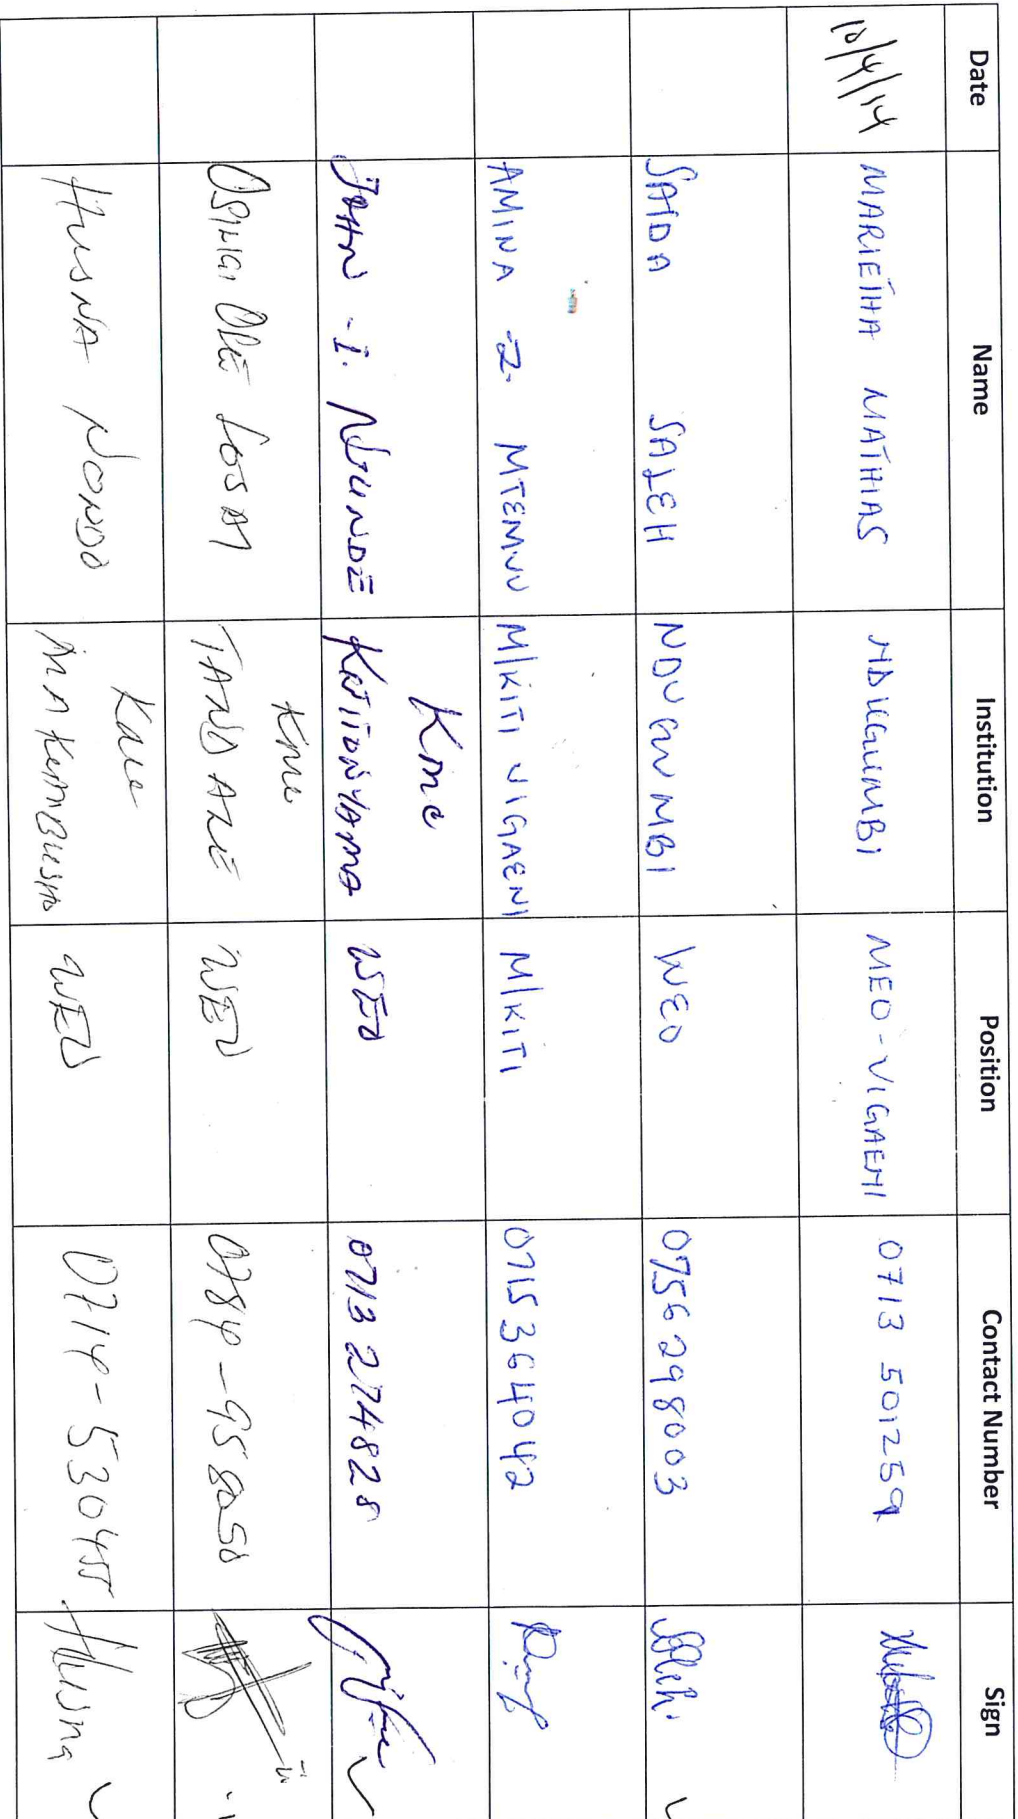 Date Name Institution Position Contact Number Sign
10/4/14 MARIETHA MATHIAS NDUGUMBI MEO-VIGAENI 0713 501259
SAIDA SALEH NDUGUMBI WEO 0756298003
AMINA -Z- MTEMVU M/KITI VIGAENI M/KITI 0715364042
JOHN -I. NDUNDE KMC KIJITONYAMA WEO 0713 274828
OSILIGI OLE LOSAI KMC TANDALE WEO 0784-958050
HUSNA NONDO KMC MAKUMBUSHO WEO 0714-530455 Husna